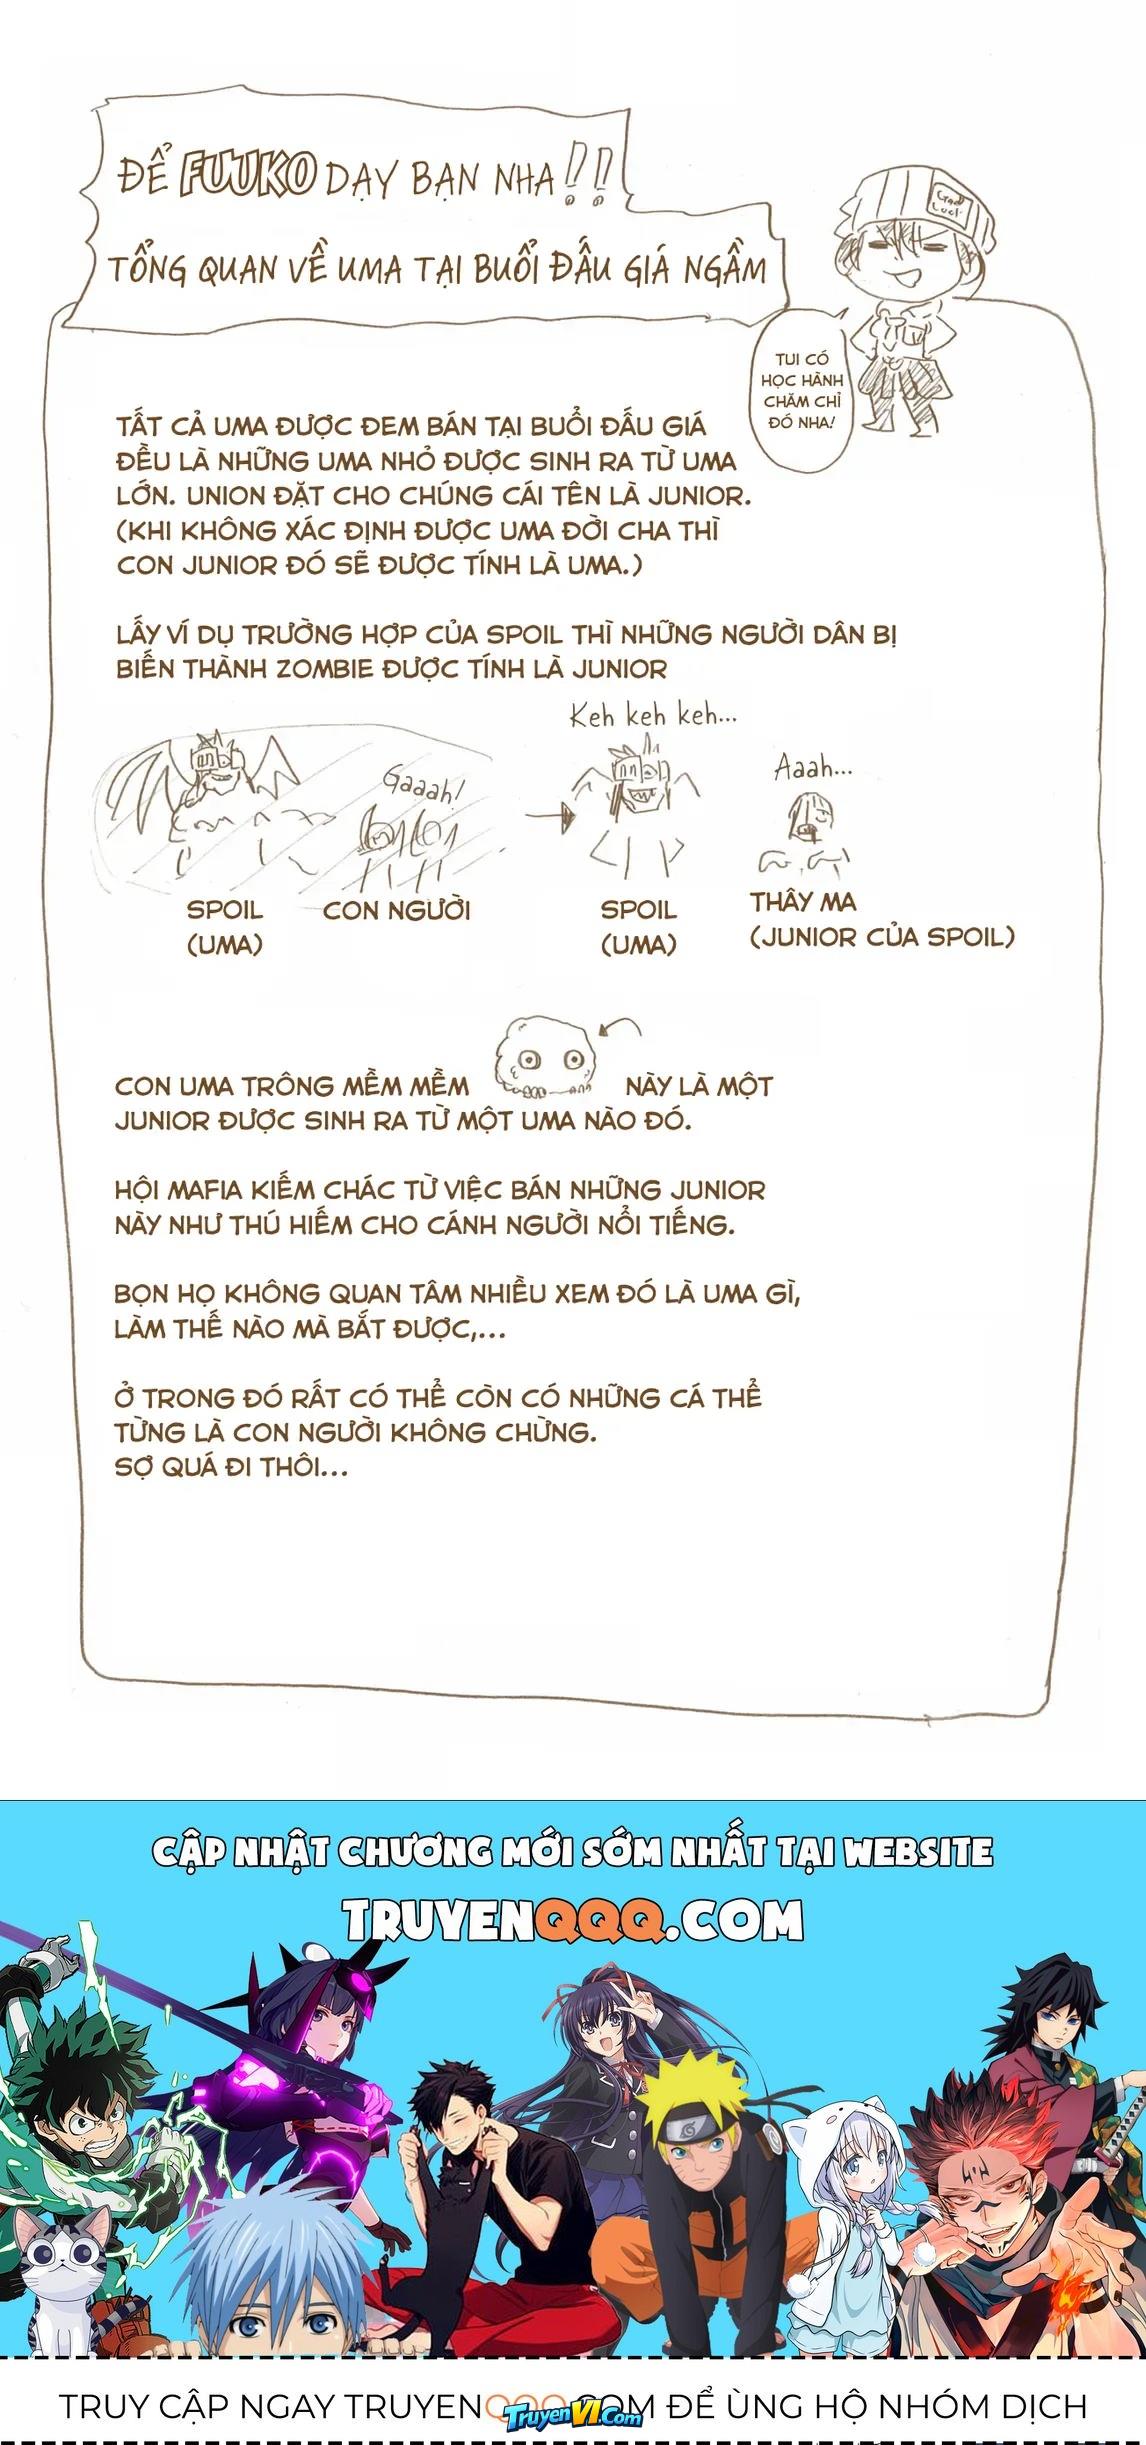 ĐỂ FUUKO DẠY BẠN NHA!!
TỔNG QUAN VỀ UMA TẠI BUỔI ĐẤU GIÁ NGẦM
TUI CÓ
HỌC HÀNH
CHĂM CHỈ
ĐÓ NHA!
TẤT CẢ UMA ĐƯỢC ĐEM BÁN TẠI BUỔI ĐẤU GIÁ
ĐỀU LÀ NHỮNG UMA NHỎ ĐƯỢC SINH RA TỪ UMA
LỚN. UNION ĐẶT CHO CHÚNG CÁI TÊN LÀ JUNIOR.
(KHI KHÔNG XÁC ĐỊNH ĐƯỢC UMA ĐỜI CHA THÌ
CON JUNIOR ĐÓ SẼ ĐƯỢC TÍNH LÀ UMA.)
LẤY VÍ DỤ TRƯỜNG HỢP CỦA SPOIL THÌ NHỮNG NGƯỜI DÂN BỊ
BIẾN THÀNH ZOMBIE ĐƯỢC TÍNH LÀ JUNIOR
Keh keh keh...
Gaaah!
Aaah...
SPOIL
(UMA)
CON NGƯỜI
SPOIL
(UMA)
THÂY MA
(JUNIOR CỦA SPOIL)
CON UMA TRÔNG MỀM MỀM NÀY LÀ MỘT
JUNIOR ĐƯỢC SINH RA TỪ MỘT UMA NÀO ĐÓ.
HỘI MAFIA KIẾM CHÁC TỪ VIỆC BÁN NHỮNG JUNIOR
NÀY NHƯ THÚ HIẾM CHO CÁNH NGƯỜI NỔI TIẾNG.
BỌN HỌ KHÔNG QUAN TÂM NHIỀU XEM ĐÓ LÀ UMA GÌ,
LÀM THẾ NÀO MÀ BẮT ĐƯỢC,...
Ở TRONG ĐÓ RẤT CÓ THỂ CÒN CÓ NHỮNG CÁ THỂ
TỪNG LÀ CON NGƯỜI KHÔNG CHỪNG.
SỢ QUÁ ĐI THÔI...
CẬP NHẬT CHƯƠNG MỚI SỚM NHẤT TẠI WEBSITE
TRUYENQQQ.COM
TRUY CẬP NGAY TRUYENQQQ.COM ĐỂ ÙNG HỘ NHÓM DỊCH
TruyenVI.Com